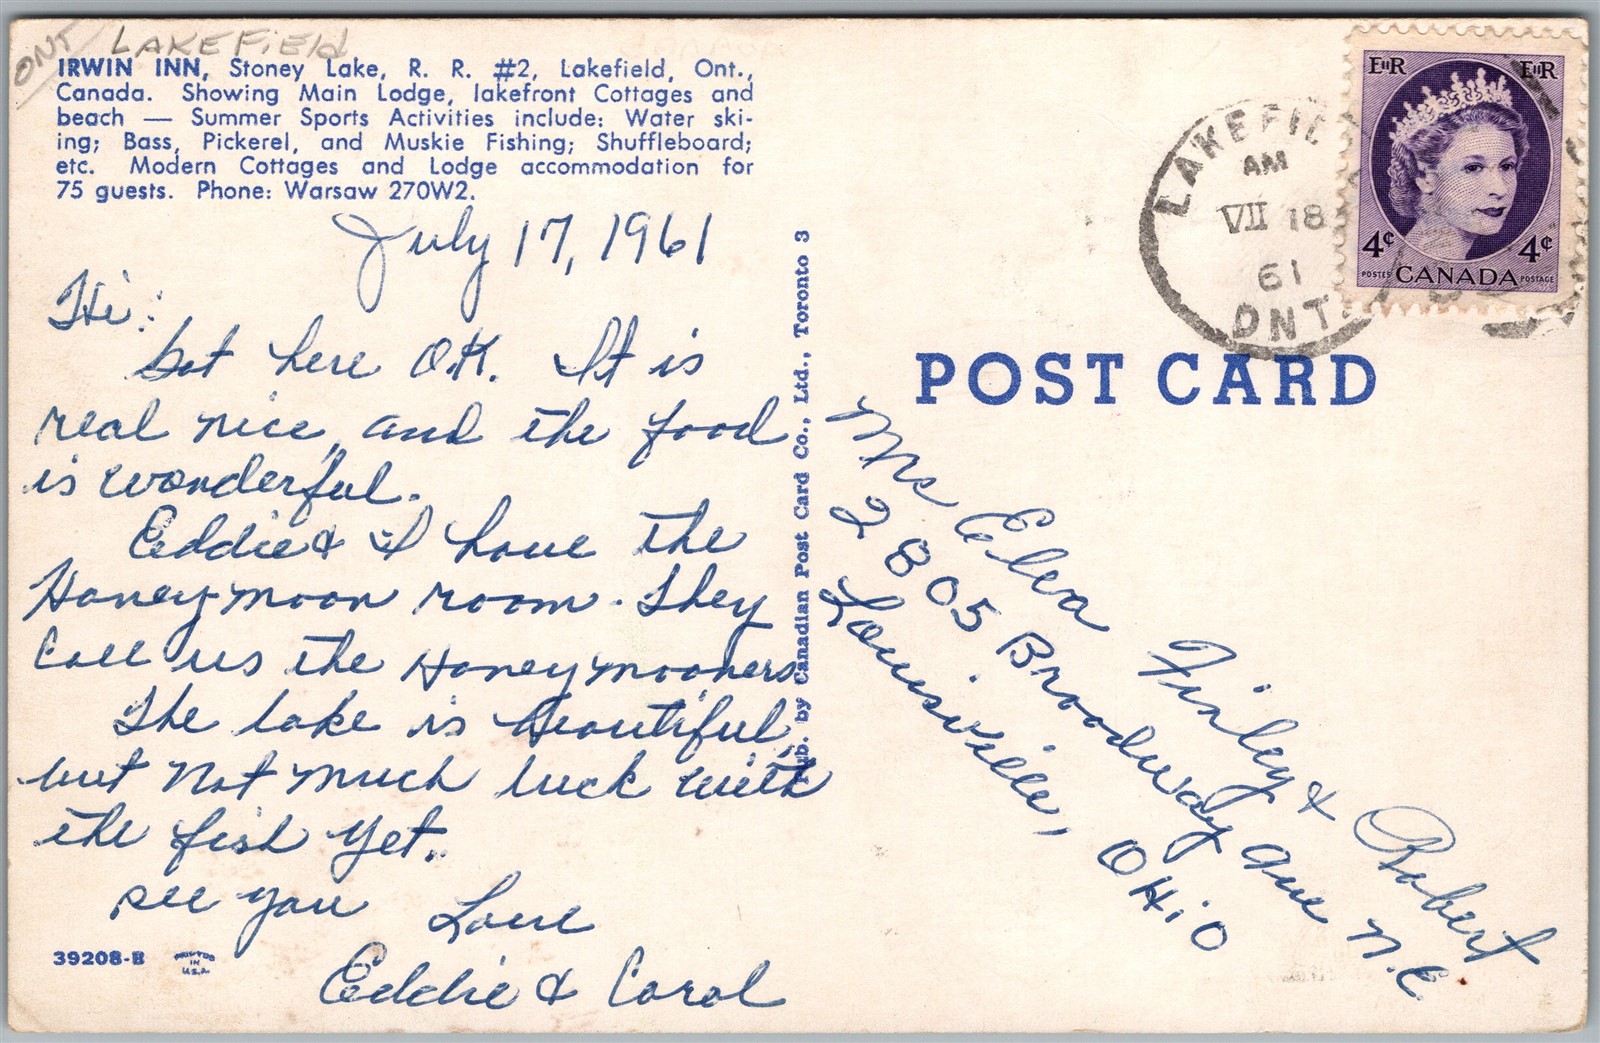 ONT LAKEFiElD
IRWIN INN, Stoney Lake, R. R. #2, Lakefield, Ont.,
Canada. Showing Main Lodge, lakefront Cottages and
beach — Summer Sports Activities include: Water ski-
ing; Bass, Pickerel, and Muskie Fishing; Shuffleboard;
etc. Modern Cottages and Lodge accommodation for
75 guests. Phone: Warsaw 270W2.
July 17, 1961
Hi:
Got here O.K. It is
real nice, and the food
is wonderful.
Eddie & I have the
Honeymoon room. They
Call us the Honeymooners
The lake is beautiful,
but not much luck with
the fish yet.
see you Love
Eddie & Carol
39208-B
PRINTED
IN
U.S.A.
Pub. by Canadian Post Card Co., Ltd., Toronto 3
LAKEFIE
AM
VII 18
61
ONT.
EIIR EIIR
4¢ 4¢
POSTES CANADA POSTAGE
POST CARD
Mrs Elva Finley & Robert
2805 Broadway Ave N.E.
Louisville, OHiO